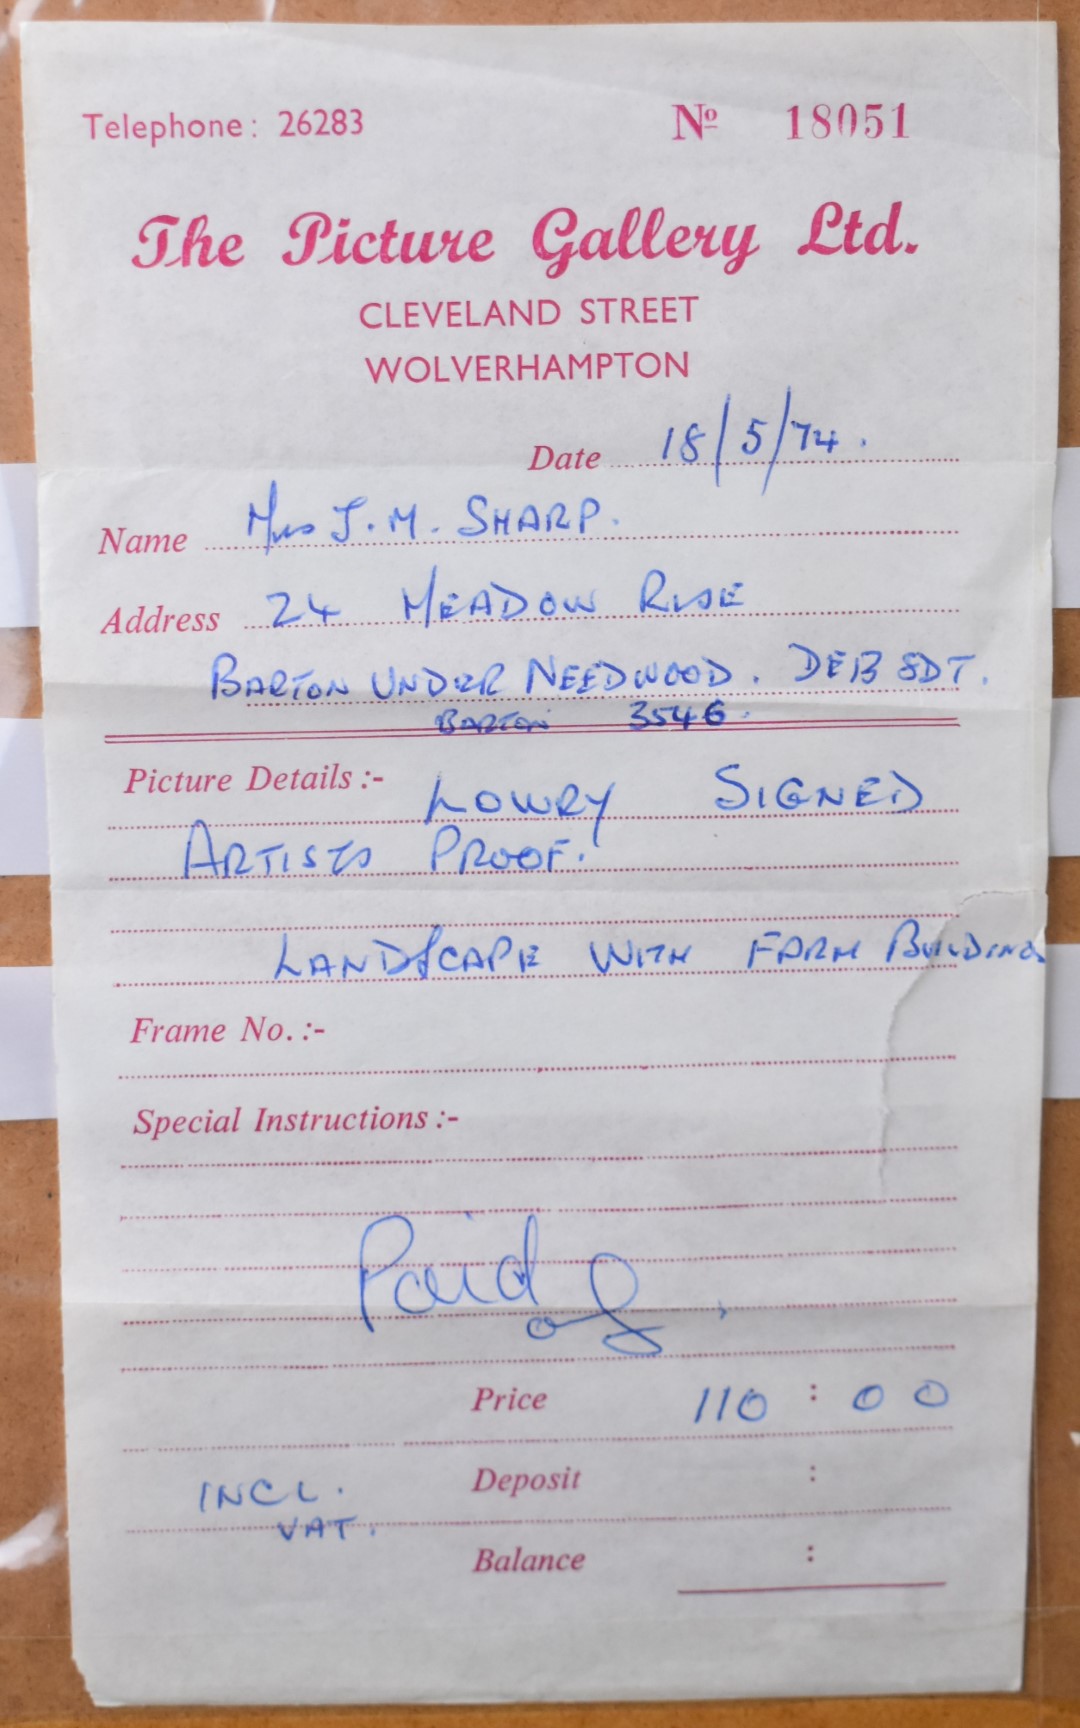 Telephone: 26283 Nº 18051
The Picture Gallery Ltd.
CLEVELAND STREET
WOLVERHAMPTON
Date 18/5/74.
Name Mrs J. M. SHARP.
Address 24 MEADOW RISE
BARTON UNDER NEEDWOOD. DE13 8DT.
BARTON 3546.
Picture Details :- LOWRY SIGNED
ARTISTS PROOF.
LANDSCAPE WITH FARM BUILDING
Frame No. :-
Special Instructions :-
Paid
Price 110 : 00
INCL. Deposit :
VAT.
Balance :